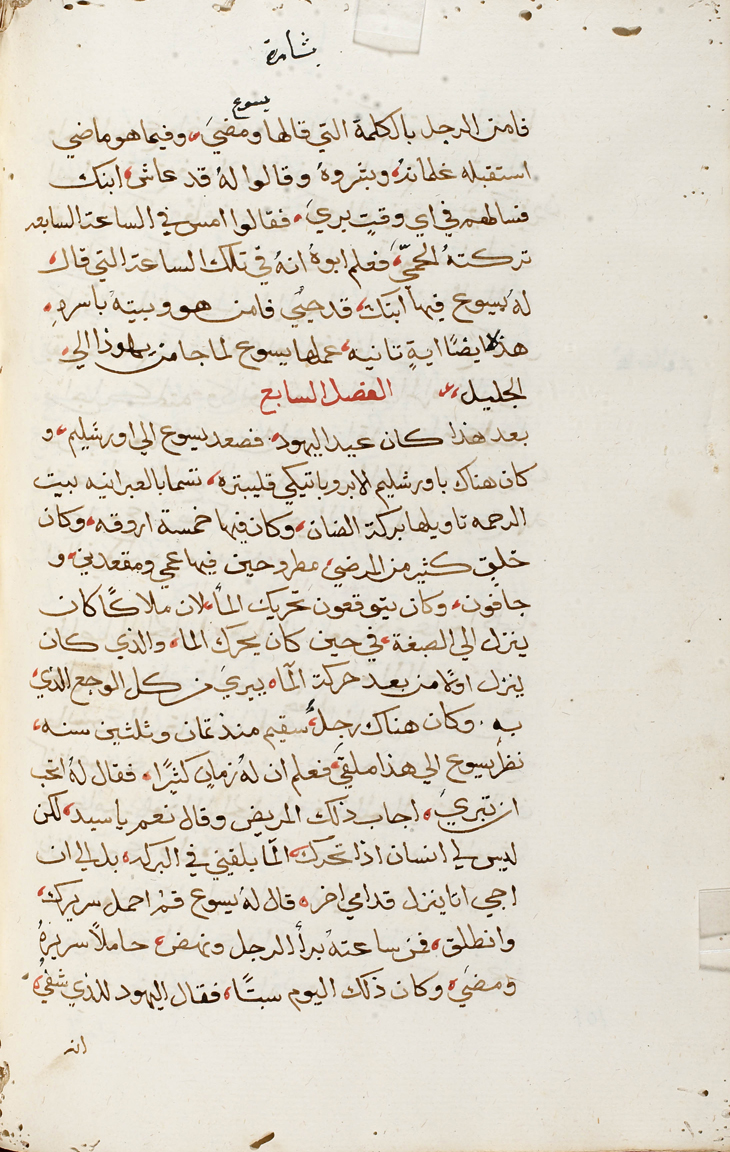 بشارة
يسوع
فامن الرجل بالكلمة التي قالها ومضيَ، وفيما هو ماضي
استقبله غلمانهُ وبشروهُ وقالوا لهُ قد عاش ابنك
فسالهم في اي وقتٍ بريَ، فقالوا امس في الساعة السابعه
تركتهُ الحميّ، فعلم ابوهُ انهُ في تلك الساعة التي قال
لهُ يسوع فيها ابنك قد حيي فامن هو وبيتهُ باسرهِ،
هذه ايضًا ايةٍ تانيه، عملها يسوع لما جا من يهوذا الي
الجليل، الفصل السابع
بعد هذا كان عيد اليهود، فصعد يسوع الي اورشليم، و
كان هناك باورشليم الابروباتيكي قليبتره، تسما بالعبرانيه بيت
الرحمه تاويلها بركة الضان، وكان فيها خمسة اروقه، وكان
خلق كثير من المرضي، مطروحين فيها عمي ومقعدين، و
جافون، وكان يتوقعون تحريك المآ، لان ملاكًا كان
ينزل الي الصبغة، في حين كان يحرك الما، والذي كان
ينزل اولًا من بعد حركة المآ، يبريَ من كل الوجع الذي
به، وكان هناك رجلٌ سقيم منذ تمان وثلثين سنه،
نظر يسوع الي هذا ملقيَ، فعلم ان لهُ زمانٍ كثيرًا، فقال لهُ اتحب
ان تبريَ، اجاب ذلك المريض وقال نعم يا سيد، لكن
ليس لي انسان اذا تحرك المآ يلقيني في البركه، بل الي ان
اجي انا ينزل قدامي اخر، قال لهُ يسوع قمْ احمل سريرك
وانطلق، فمن ساعتهُ برأ الرجل ونهض، حاملاً سريرهُ
ومضيَ، وكان ذلك اليوم سبتًا، فقال اليهود للذي شفيُ
انه